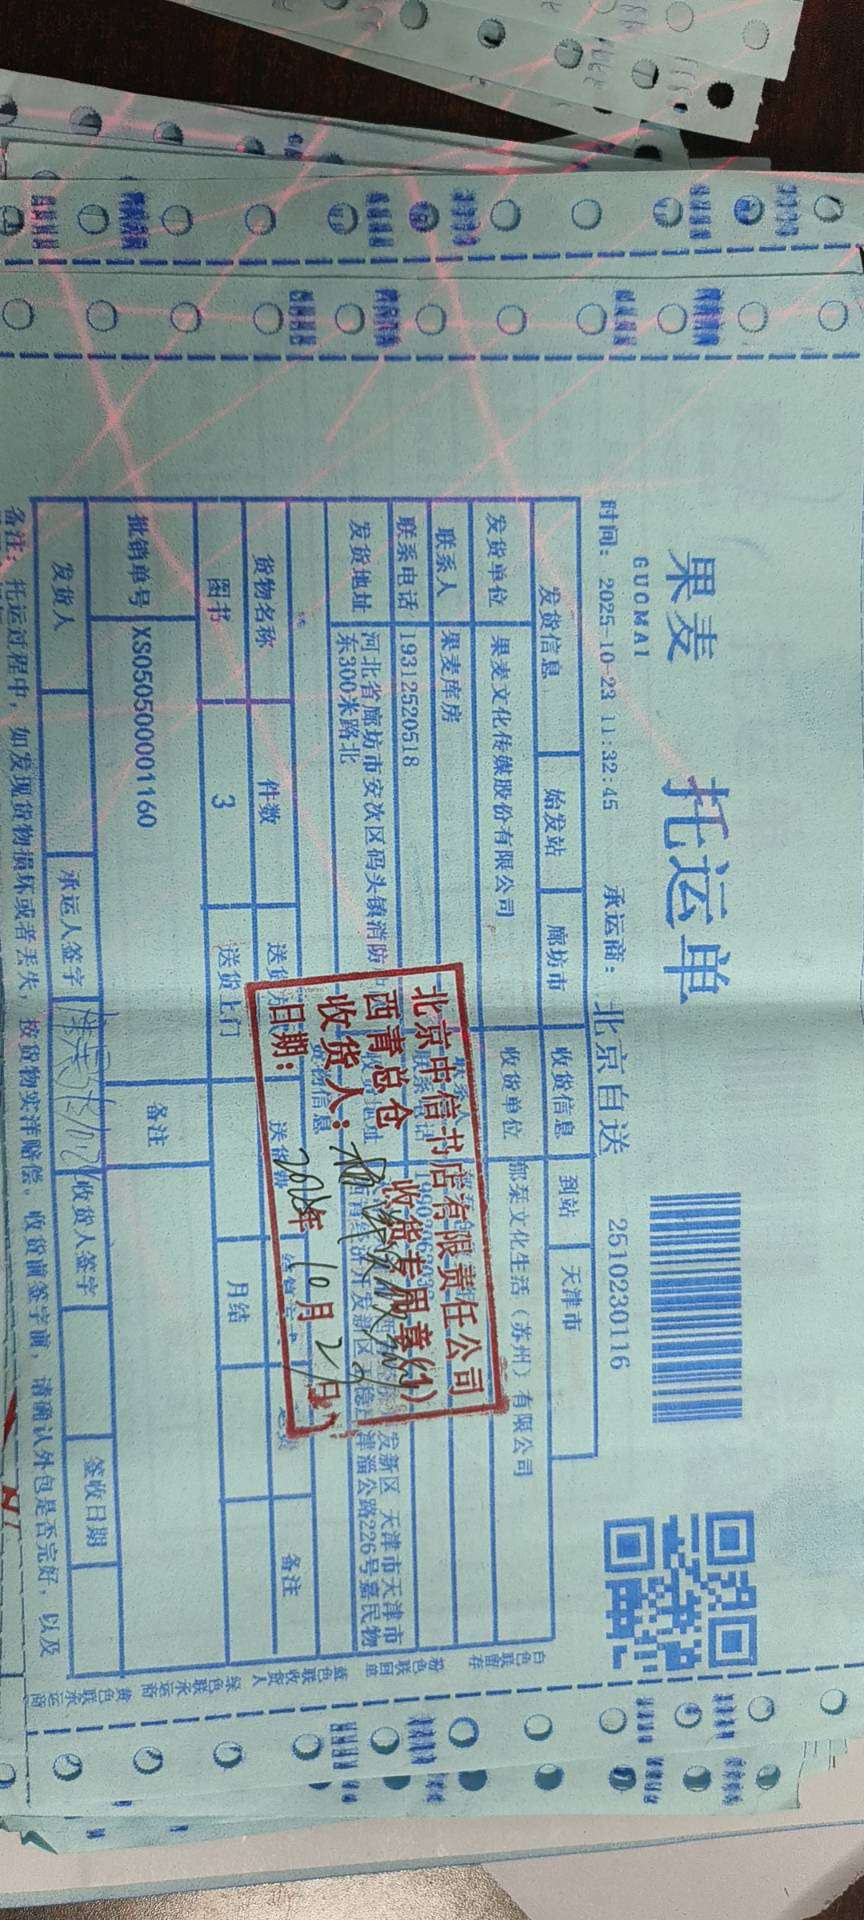 果麦 托运单
GUOMAI
时间: 2025-10-23 11:32:45 承运商: 北京自送 2510230116
发货信息 始发站 廊坊市 收货信息 到站 天津市
发货单位 果麦文化传媒股份有限公司 收货单位 (苏州)有限公司
联系人 果麦库房 联系人
联系电话 19312520518 联系电话
发货地址 河北省廊坊市安次区码头镇消防
东300米路北
发新区 天津市天津市
津淄公路226号嘉民物
货物信息
货物名称 件数 备注
图书 3 送货上门 月结
报销单号 XS050500001160 备注
发货人 承运人签字 收货人签字 签收日期
备注: 托运过程中, 如发现货物损坏或者丢失, 按货物实洋赔偿。收货前签字前, 请确认外包是否完好, 以及
北京中信书店有限责任公司
西青总仓 收货专用章(1)
收货人:
日期: 年 10月
白色联留存
粉色联回单
蓝色联收货人
绿色联承运商
黄色联承运商